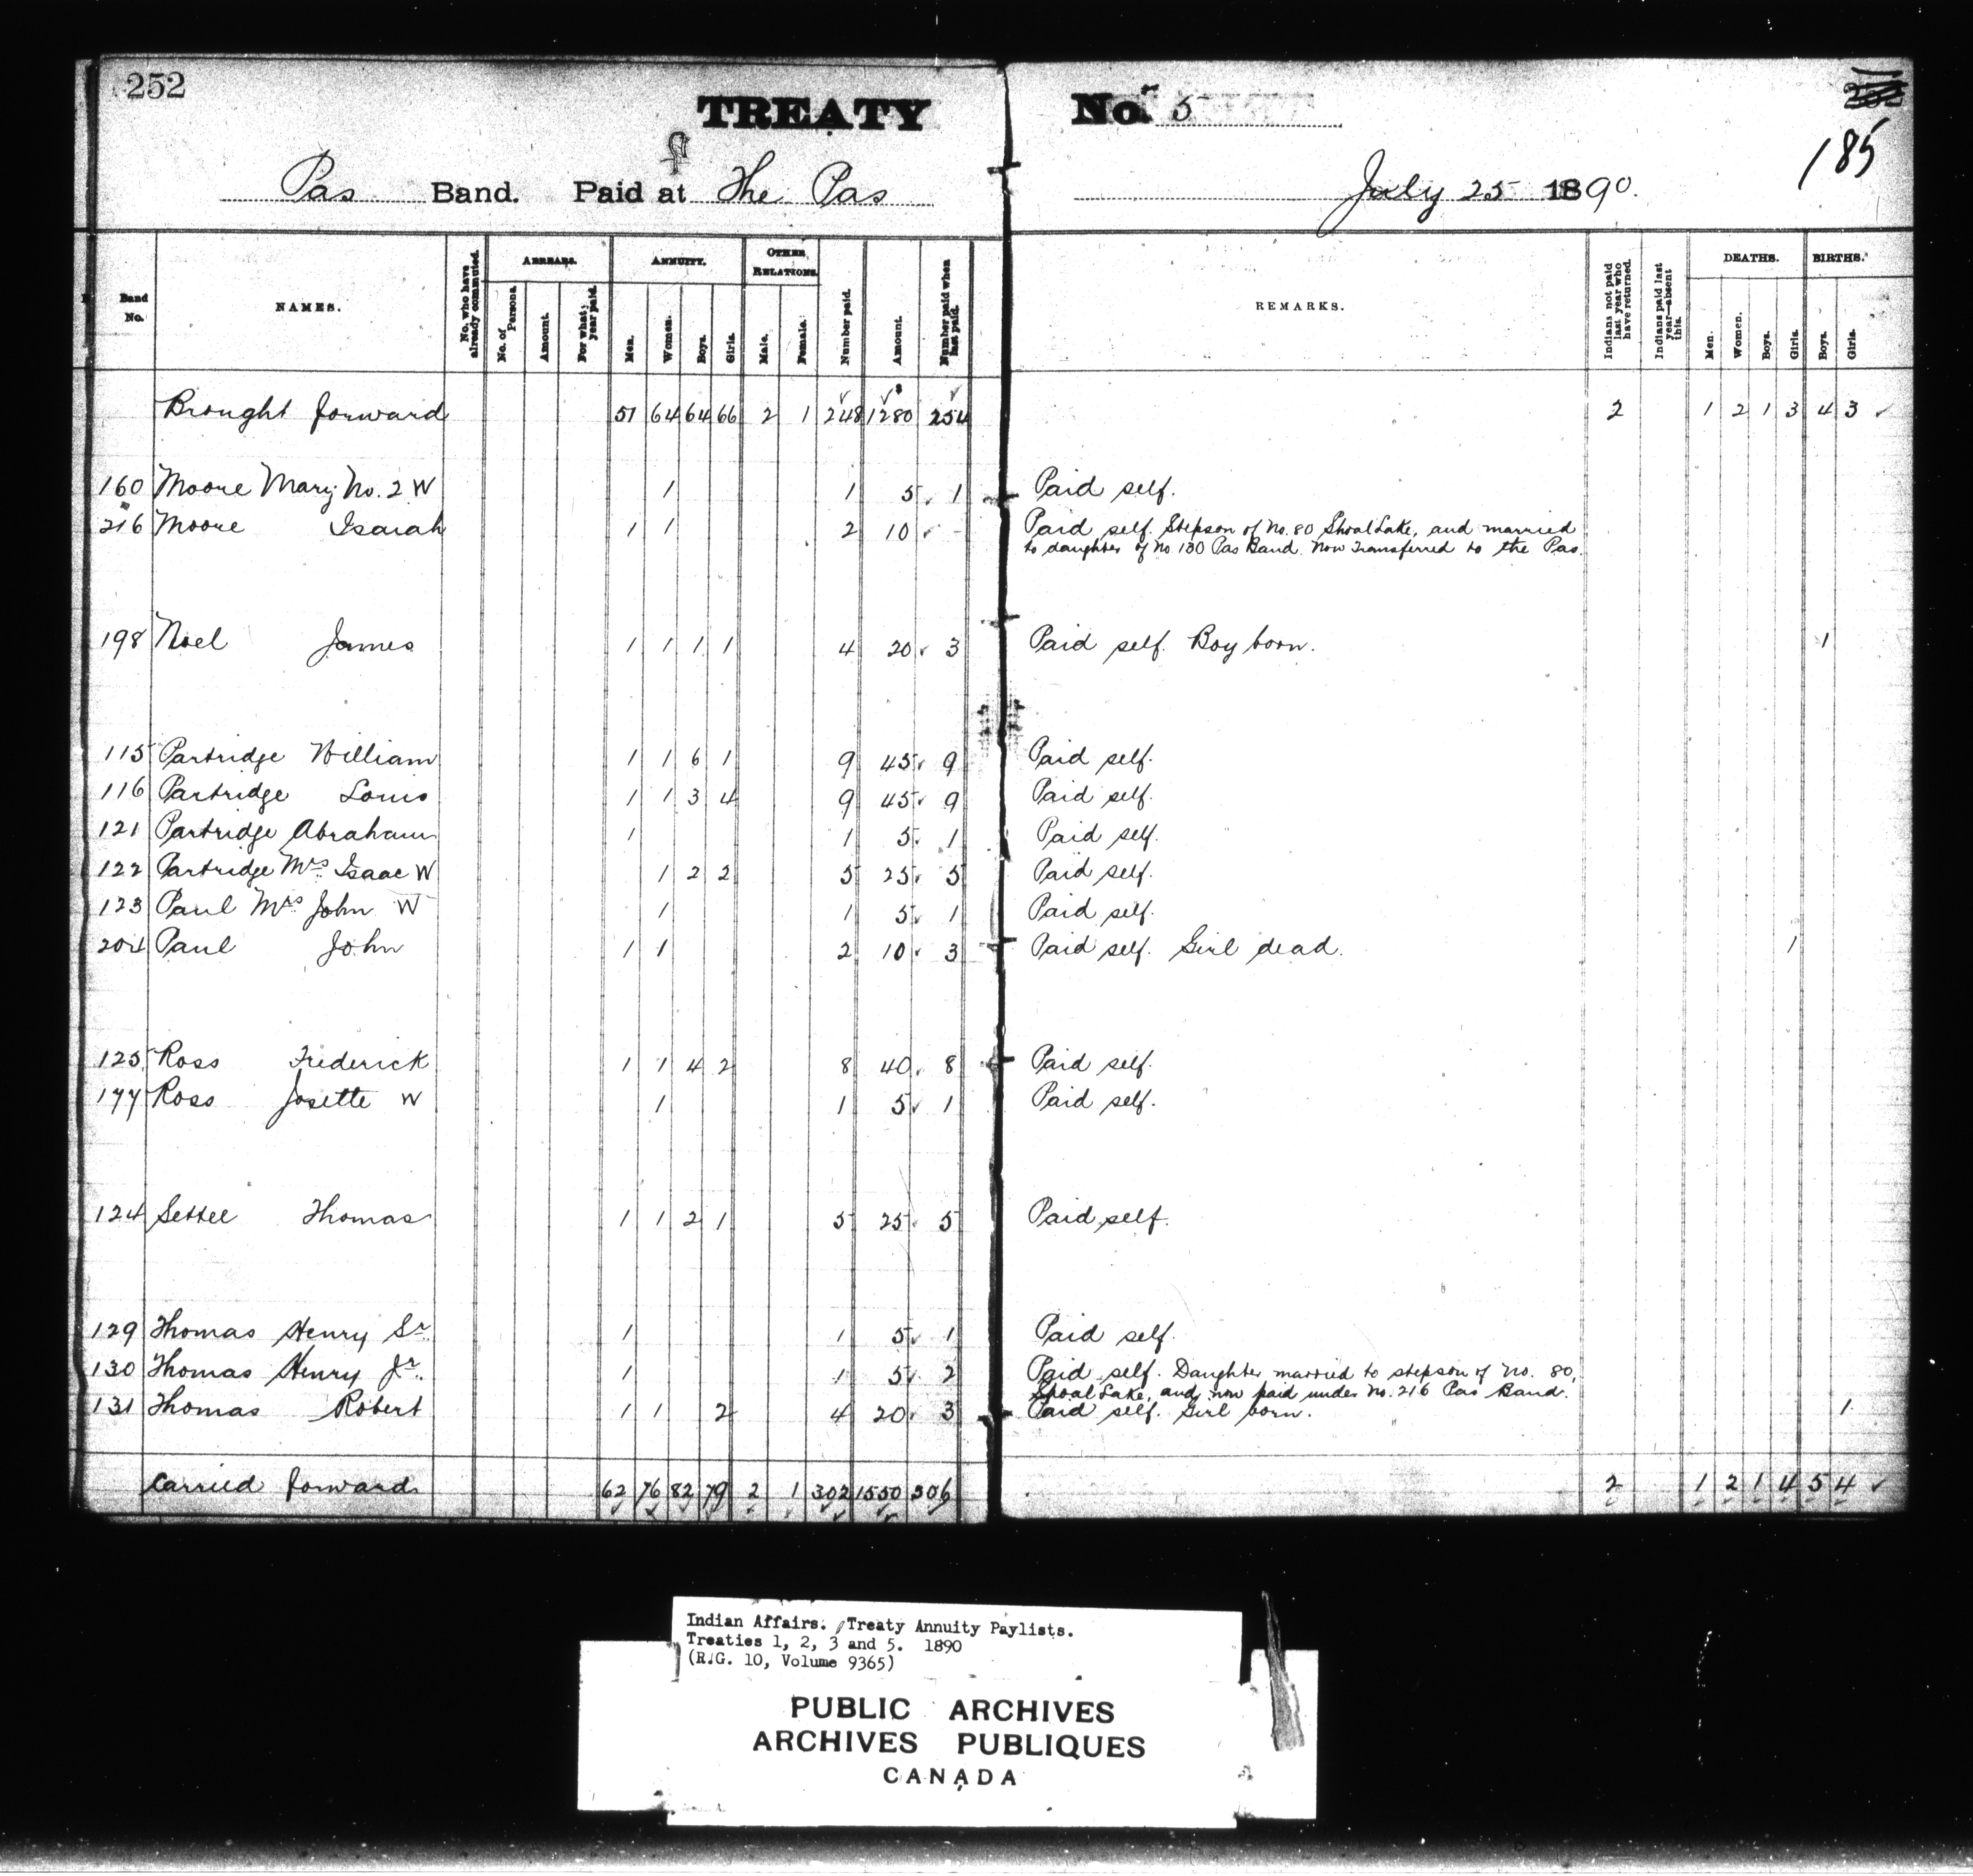 252
TREATY No. 5
185
Pas Band. Paid at The Pas July 25 1890.
Band No. NAMES. No. who have already commuted. ARREARS. No. of Persons. Amount. For what year paid. ANNUITY. Men. Women. Boys. Girls. OTHER RELATIONS. Male. Female. Number paid. Amount. Number paid when last paid. REMARKS. Indians not paid last year who have returned. Indians paid last year—absent this. DEATHS. Men. Women. Boys. Girls. BIRTHS. Boys. Girls.
Brought forward 51 64 64 66 2 1 248 1280 254 2 1 2 1 3 4 3
160 Moore Mary No. 2 W 1 1 5 1 Paid self.
216 Moore Isaiah 1 1 2 10 - Paid self. Stepson of No. 80 Shoal Lake, and married
to daughter of No. 130 Pas Band. Now transferred to the Pas.
198 Noel James 1 1 1 1 4 20 3 Paid self. Boy born. 1
115 Partridge William 1 1 6 1 9 45 9 Paid self.
116 Partridge Louis 1 1 3 4 9 45 9 Paid self.
121 Partridge Abraham 1 1 5 1 Paid self.
122 Partridge Mrs Isaac W 1 2 2 5 25 5 Paid self.
123 Paul Mrs John W 1 1 5 1 Paid self.
204 Paul John 1 1 2 10 3 Paid self. Girl dead. 1
125 Ross Frederick 1 1 4 2 8 40 8 Paid self.
177 Ross Josette W 1 1 5 1 Paid self.
124 Settee Thomas 1 1 2 1 5 25 5 Paid self.
129 Thomas Henry Sr. 1 1 5 1 Paid self.
130 Thomas Henry Jr. 1 1 5 2 Paid self. Daughter married to stepson of No. 80,
Shoal Lake, and now paid under No. 216 Pas Band.
131 Thomas Robert 1 1 2 4 20 3 Paid self. Girl born. 1
Carried forward 62 76 82 79 2 1 302 1550 306 2 1 2 1 4 5 4
Indian Affairs. Treaty Annuity Paylists.
Treaties 1, 2, 3 and 5. 1890
(R.G. 10, Volume 9365)
PUBLIC ARCHIVES
ARCHIVES PUBLIQUES
CANADA